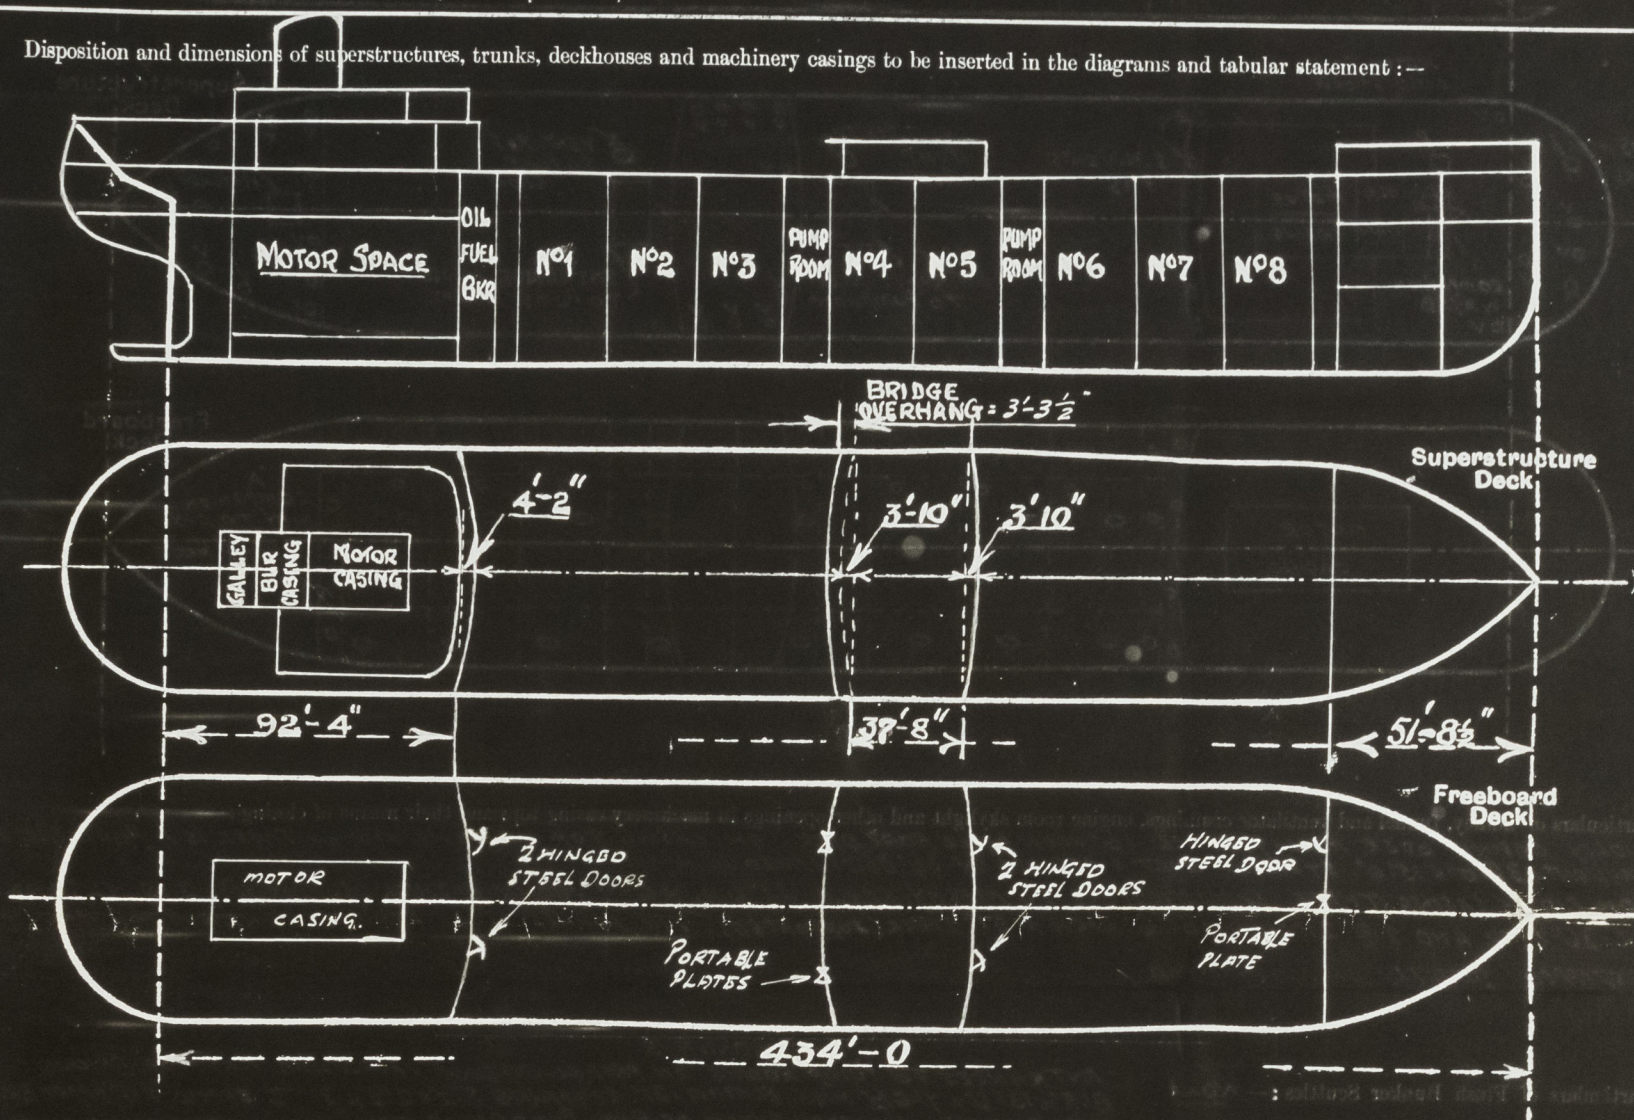 Disposition and dimensions of superstructures, trunks, deckhouses and machinery casings to be inserted in the diagrams and tabular statement :—
OIL
FUEL
BKR
MOTOR SPACE
Nº1
Nº2
Nº3
PUMP
ROOM
Nº4
Nº5
PUMP
ROOM
Nº6
Nº7
Nº8
BRIDGE
OVERHANG = 3'-3½"
Superstructure
Deck
4'-2"
3'-10"
3'10"
GALLEY
BLR
CASING
MOTOR
CASING
92'-4"
37'-8"
51'-8½"
Freeboard
Deck
2 HINGED
STEEL DOORS
2 HINGED
STEEL DOORS
HINGED
STEEL DOOR
MOTOR
CASING.
PORTABLE
PLATES
PORTABLE
PLATE
434'-0